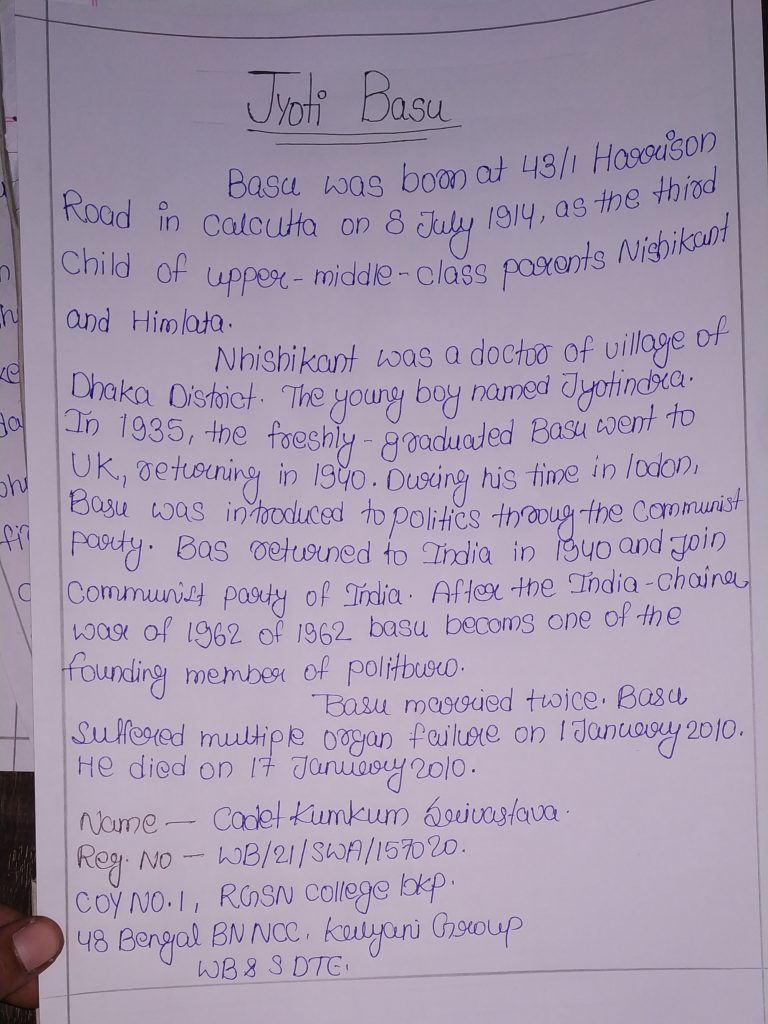 Jyoti Basu
Basu was born at 43/1 Harrison
Road in Calcutta on 8 July 1914, as the third
Child of upper-middle-class parents Nishikant
and Himlata.
Nhishikant was a doctor of village of
Dhaka District. The young boy named Jyotindra.
In 1935, the freshly-graduated Basu went to
UK, returning in 1940. During his time in lodon,
Basu was introduced to politics throug the Communist
party. Bas returned to India in 1940 and Join
Communist party of India. After the India-Chaina
war of 1962 of 1962 basu becoms one of the
founding member of politburo.
Basu married twice. Basu
Suffered multiple organ failure on 1 January 2010.
He died on 17 January 2010.
Name — Cadet Kumkum Srivastava.
Reg. No — WB/21/SWA/157020.
COY NO. 1, RGSN College bkp.
48 Bengal BN NCC. Kalyani Group
WB & S DTE.